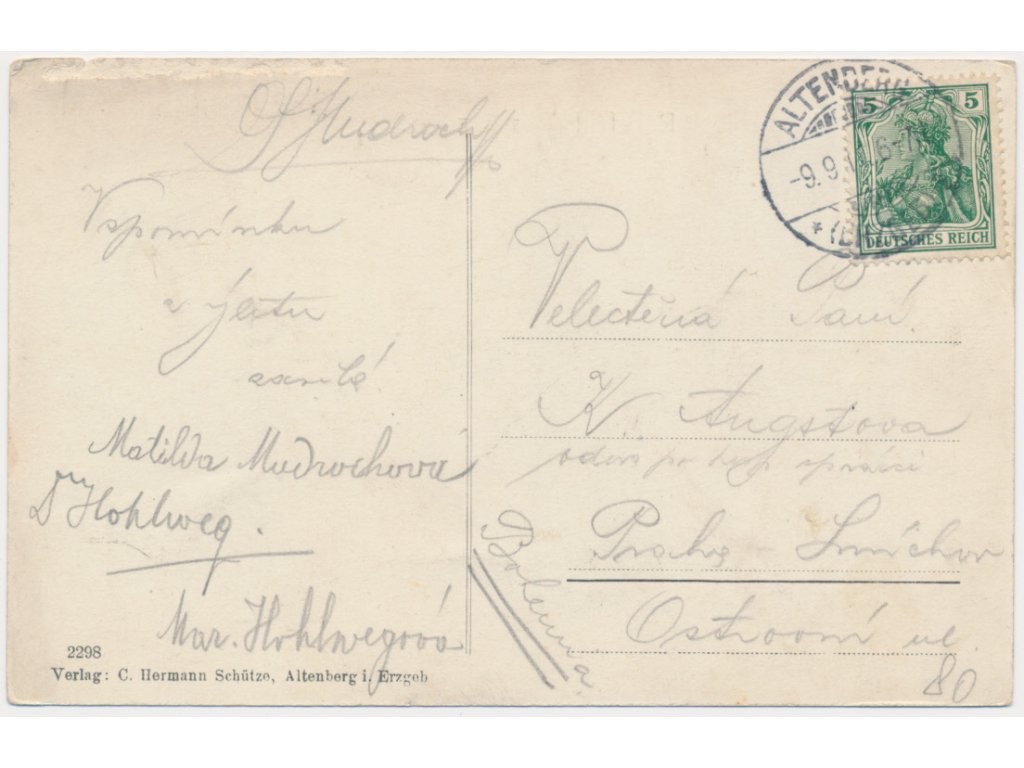 Mudroch
Vzpomínku
z výletu
zasílá
Matilda Mudrochová
Dr Hohlweg.
Mar. Hohlwegová
2298
Verlag: C. Hermann Schütze, Altenberg i. Erzgeb
ALTENBERG
-9.9.
5 5
DEUTSCHES REICH
Velectěná Paní
K. Augstova
Praha - Smíchov
Ostrovní ul.
Bohemia.
80